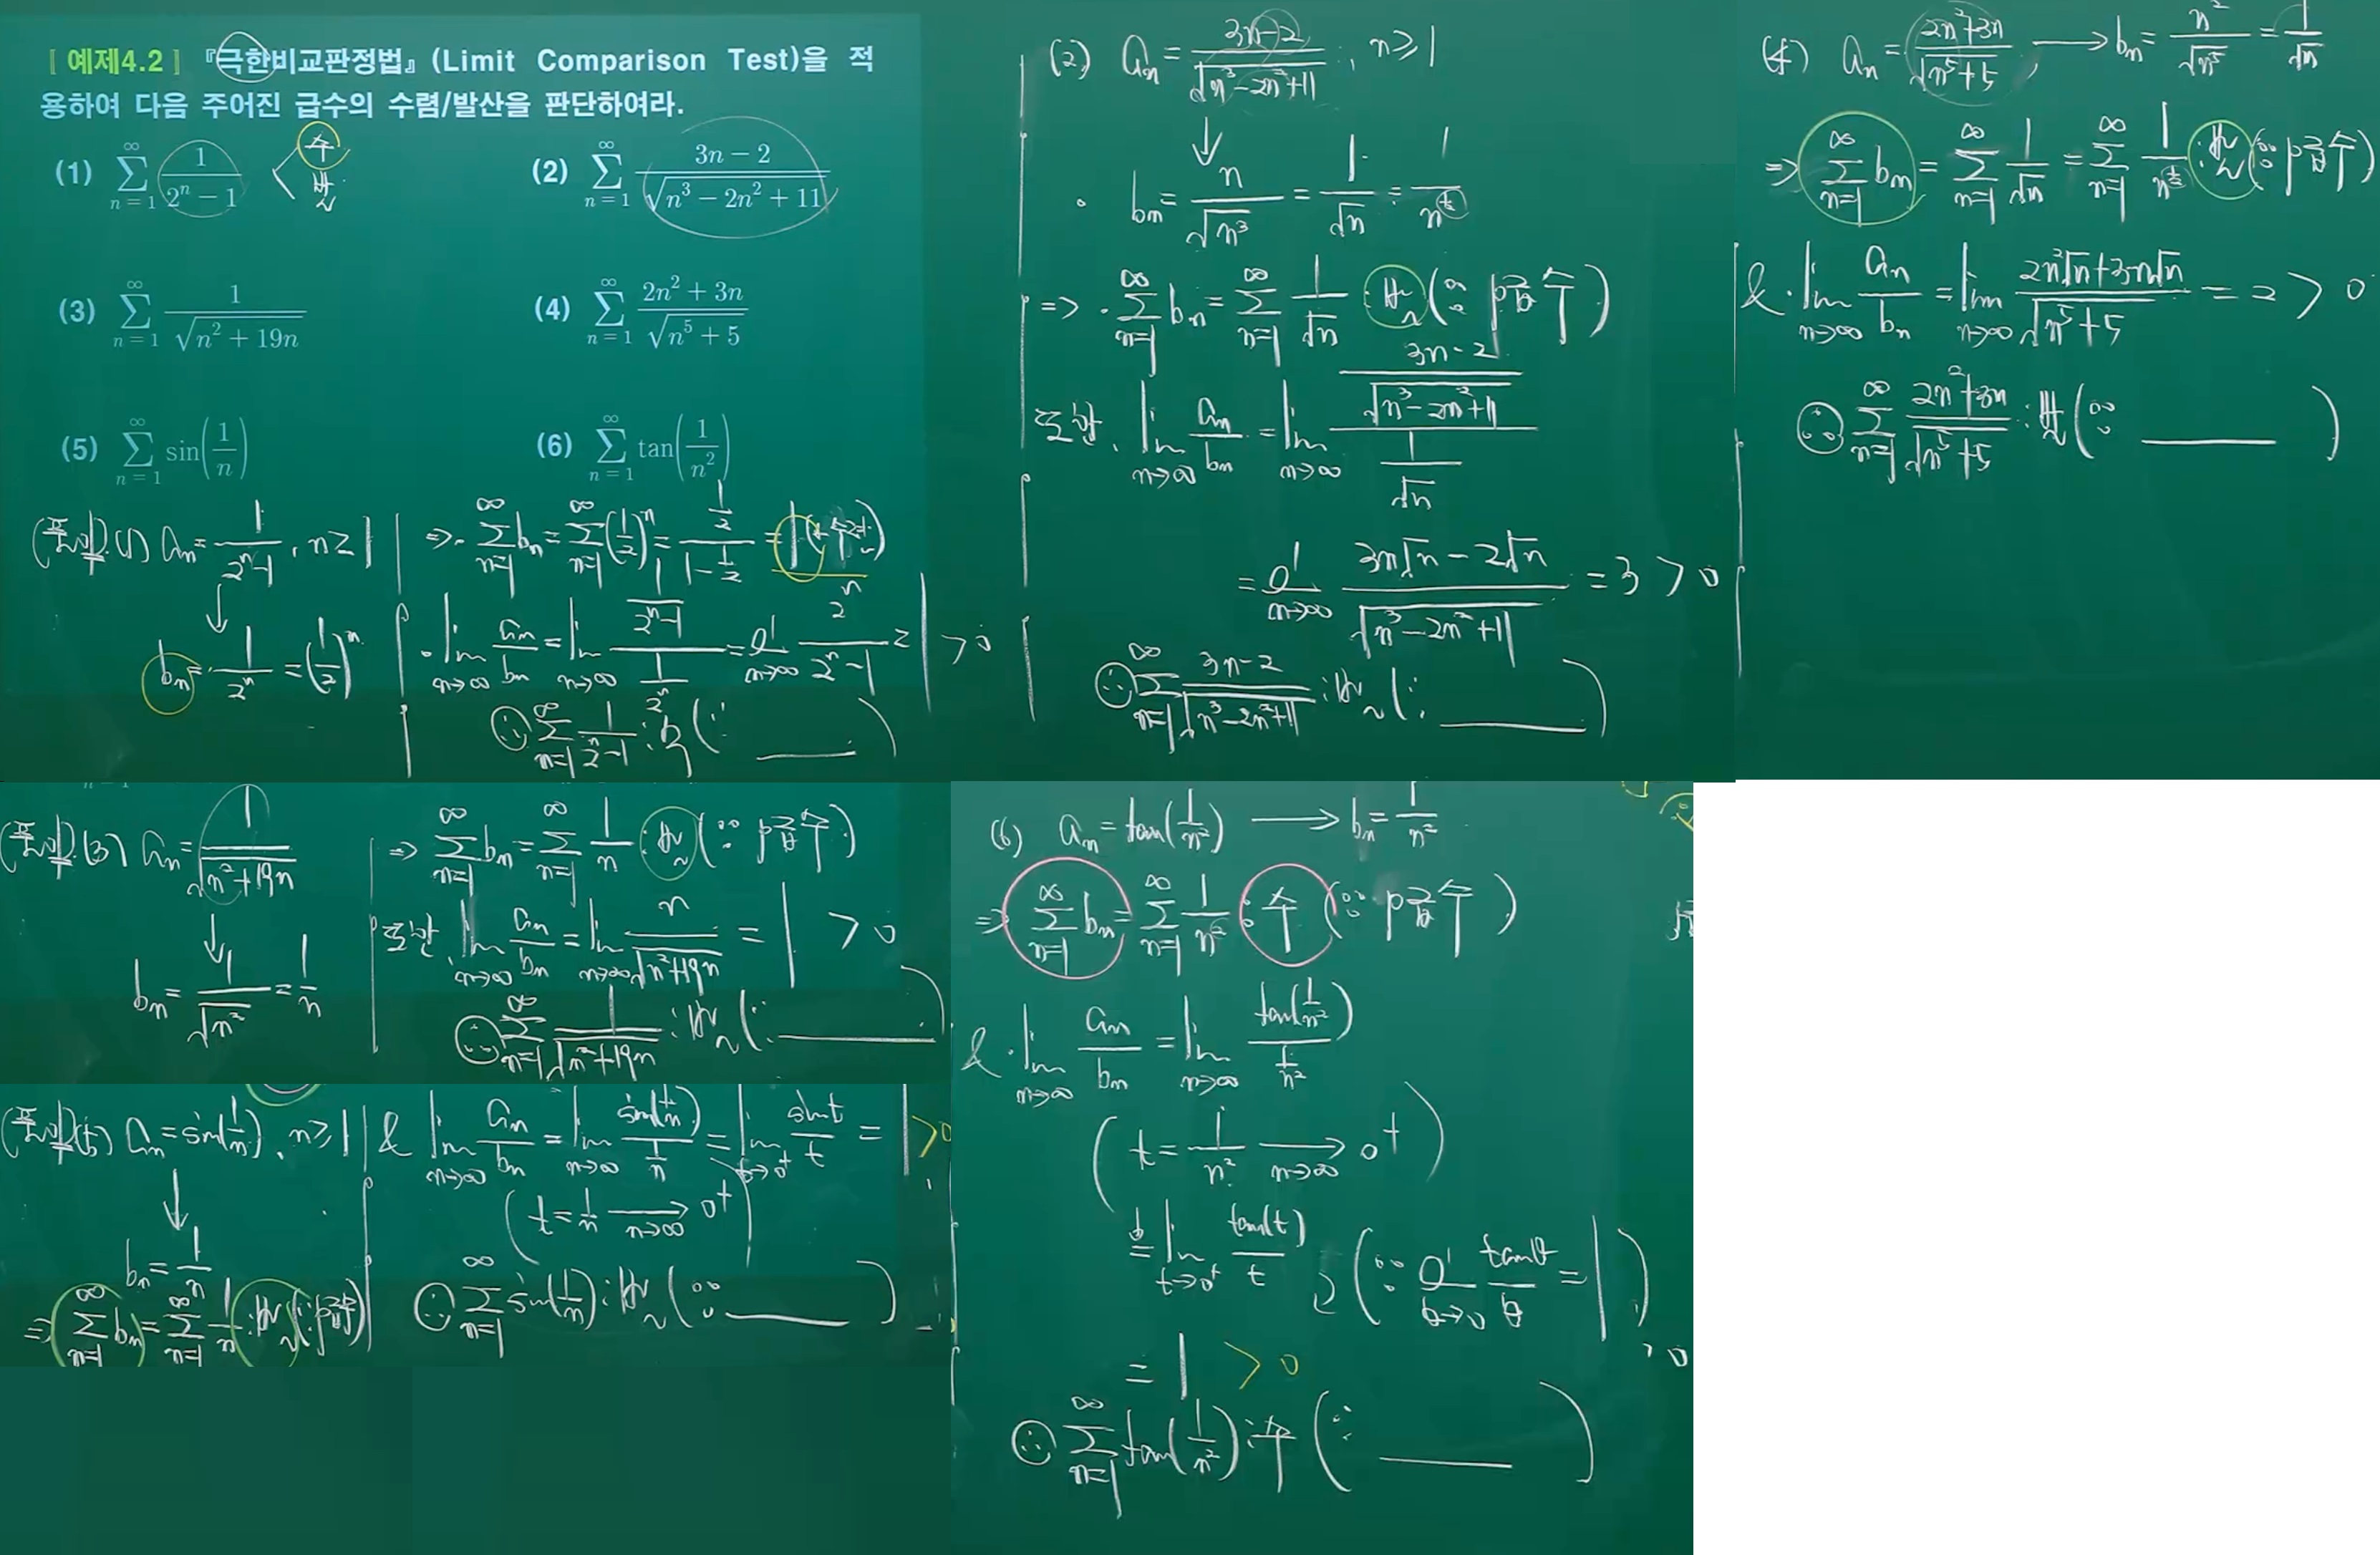 [ 예제4.2 ] 『극한비교판정법』(Limit Comparison Test)을 적
용하여 다음 주어진 급수의 수렴/발산을 판단하여라.
(1) \sum_{n=1}^{∞} \frac{1}{2^n - 1} < 수 발
(2) \sum_{n=1}^{∞} \frac{3n-2}{\sqrt{n^3 - 2n^2 + 11}}
(3) \sum_{n=1}^{∞} \frac{1}{\sqrt{n^2 + 19n}}
(4) \sum_{n=1}^{∞} \frac{2n^2 + 3n}{\sqrt{n^5 + 5}}
(5) \sum_{n=1}^{∞} sin(\frac{1}{n})
(6) \sum_{n=1}^{∞} tan(\frac{1}{n^2})
(풀이) (1) a_n = \frac{1}{2^n-1}, n ≥ 1
↓
b_n = \frac{1}{2^n} = (\frac{1}{2})^n
⇒ · \sum_{n=1}^{∞} b_n = \sum_{n=1}^{∞} (\frac{1}{2})^n = \frac{\frac{1}{2}}{1-\frac{1}{2}} = 1 (수렴)
· lim_{n→∞} \frac{a_n}{b_n} = lim_{n→∞} \frac{\frac{1}{2^n-1}}{\frac{1}{2^n}} = lim_{n→∞} \frac{2^n}{2^n-1} = 1 > 0
∴ \sum_{n=1}^{∞} \frac{1}{2^n-1} : 수 (∵ ____ )
(2) a_n = \frac{3n-2}{\sqrt{n^3-2n^2+11}}, n ≥ 1
↓
· b_n = \frac{n}{\sqrt{n^3}} = \frac{1}{\sqrt{n}} = \frac{1}{n^{\frac{1}{2}}}
⇒ · \sum_{n=1}^{∞} b_n = \sum_{n=1}^{∞} \frac{1}{\sqrt{n}} : 발 (∵ p급수)
또한, lim_{n→∞} \frac{a_n}{b_n} = lim_{n→∞} \frac{\frac{3n-2}{\sqrt{n^3-2n^2+11}}}{\frac{1}{\sqrt{n}}}
= lim_{n→∞} \frac{3n\sqrt{n} - 2\sqrt{n}}{\sqrt{n^3-2n^2+11}} = 3 > 0
∴ \sum_{n=1}^{∞} \frac{3n-2}{\sqrt{n^3-2n^2+11}} : 발 (∵ ____ )
(4) a_n = \frac{2n^2+3n}{\sqrt{n^5+5}}, → b_n = \frac{n^2}{\sqrt{n^5}} = \frac{1}{\sqrt{n}}
⇒ \sum_{n=1}^{∞} b_n = \sum_{n=1}^{∞} \frac{1}{\sqrt{n}} = \sum_{n=1}^{∞} \frac{1}{n^{\frac{1}{2}}} : 발 (∵ p급수)
& · lim_{n→∞} \frac{a_n}{b_n} = lim_{n→∞} \frac{2n^2\sqrt{n}+3n\sqrt{n}}{\sqrt{n^5+5}} = 2 > 0
∴ \sum_{n=1}^{∞} \frac{2n^2+3n}{\sqrt{n^5+5}} : 발 (∵ ____ )
(풀이) (3) a_n = \frac{1}{\sqrt{n^2+19n}}
↓
b_n = \frac{1}{\sqrt{n^2}} = \frac{1}{n}
⇒ \sum_{n=1}^{∞} b_n = \sum_{n=1}^{∞} \frac{1}{n} : 발 (∵ p급수)
또한, lim_{n→∞} \frac{a_n}{b_n} = lim_{n→∞} \frac{n}{\sqrt{n^2+19n}} = 1 > 0
∴ \sum_{n=1}^{∞} \frac{1}{\sqrt{n^2+19n}} : 발 (∵ ____ )
(풀이) (5) a_n = sin(\frac{1}{n}), n ≥ 1
↓
b_n = \frac{1}{n}
⇒ \sum_{n=1}^{∞} b_n = \sum_{n=1}^{∞} \frac{1}{n} : 발 (∵ p급수)
& lim_{n→∞} \frac{a_n}{b_n} = lim_{n→∞} \frac{sin(\frac{1}{n})}{\frac{1}{n}} = lim_{t→0^+} \frac{sin t}{t} = 1 > 0
(t = \frac{1}{n} \xrightarrow{n→∞} 0^+)
∴ \sum_{n=1}^{∞} sin(\frac{1}{n}) : 발 (∵ ____ )
(6) a_n = tan(\frac{1}{n^2}) → b_n = \frac{1}{n^2}
⇒ \sum_{n=1}^{∞} b_n = \sum_{n=1}^{∞} \frac{1}{n^2} : 수 (∵ p급수)
& · lim_{n→∞} \frac{a_n}{b_n} = lim_{n→∞} \frac{tan(\frac{1}{n^2})}{\frac{1}{n^2}}
(t = \frac{1}{n^2} \xrightarrow{n→∞} 0^+)
= lim_{t→0^+} \frac{tan(t)}{t} (∵ lim_{θ→0} \frac{tanθ}{θ} = 1)
= 1 > 0
∴ \sum_{n=1}^{∞} tan(\frac{1}{n^2}) : 수 (∵ ____ )